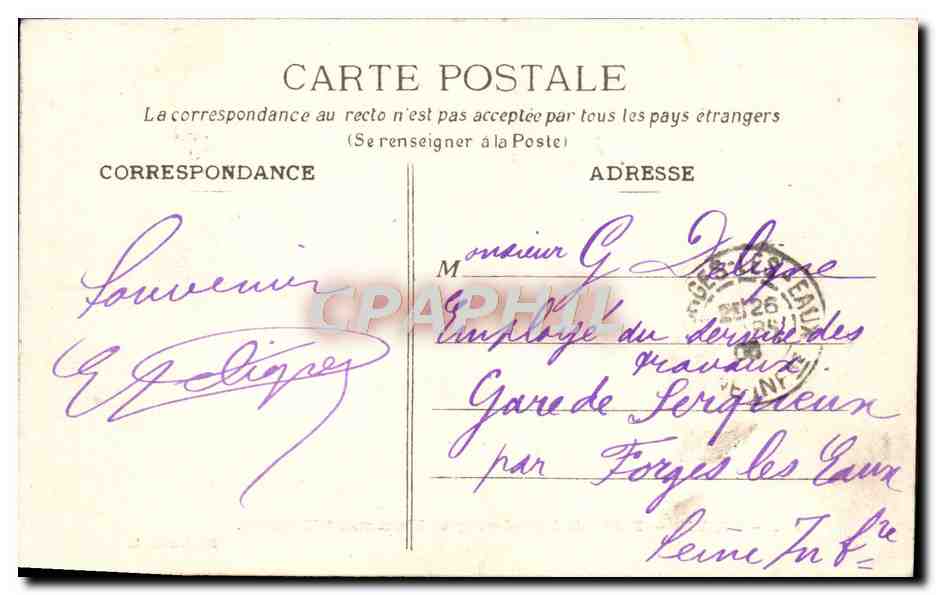 CARTE POSTALE
La correspondance au recto n'est pas acceptée par tous les pays étrangers
(Se renseigner à la Poste)
CORRESPONDANCE
ADRESSE
Souvenir
Monsieur G Deligne
Employé du service des
travaux
Gare de Serqueux
par Forges les Eaux
Seine Infre
CPAPHIL
GES-LES-EAUX
26